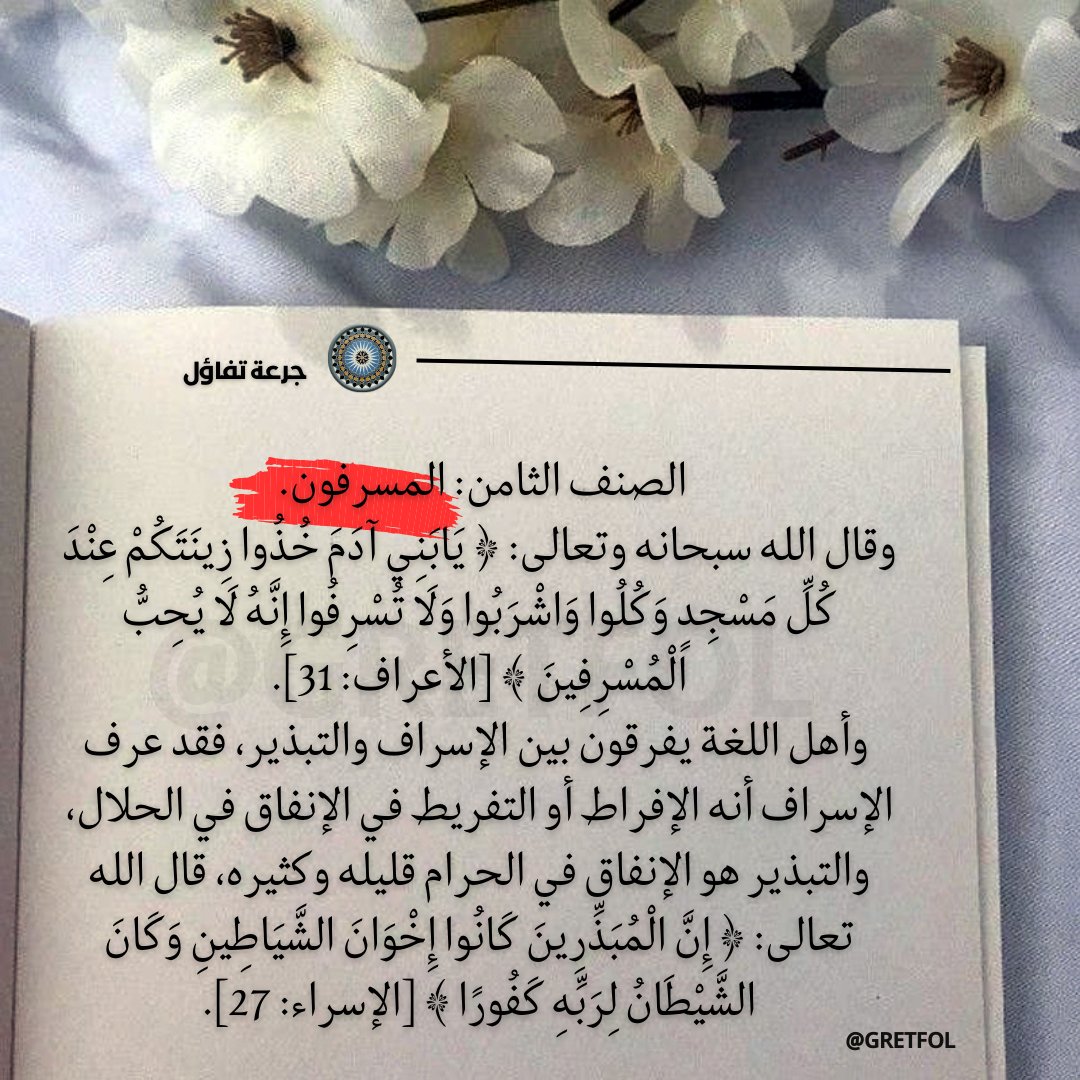 جرعة تفاؤل
الصنف الثامن: المسرفون.
وقال الله سبحانه وتعالى: ﴿ يَابَنِي آدَمَ خُذُوا زِينَتَكُمْ عِنْدَ
كُلِّ مَسْجِدٍ وَكُلُوا وَاشْرَبُوا وَلَا تُسْرِفُوا إِنَّهُ لَا يُحِبُّ
الْمُسْرِفِينَ ﴾ [الأعراف: 31].
وأهل اللغة يفرقون بين الإسراف والتبذير، فقد عرف
الإسراف أنه الإفراط أو التفريط في الإنفاق في الحلال،
والتبذير هو الإنفاق في الحرام قليله وكثيره، قال الله
تعالى: ﴿ إِنَّ الْمُبَذِّرِينَ كَانُوا إِخْوَانَ الشَّيَاطِينِ وَكَانَ
الشَّيْطَانُ لِرَبِّهِ كَفُورًا ﴾ [الإسراء: 27].
@GRETFOL
@GRETFOL